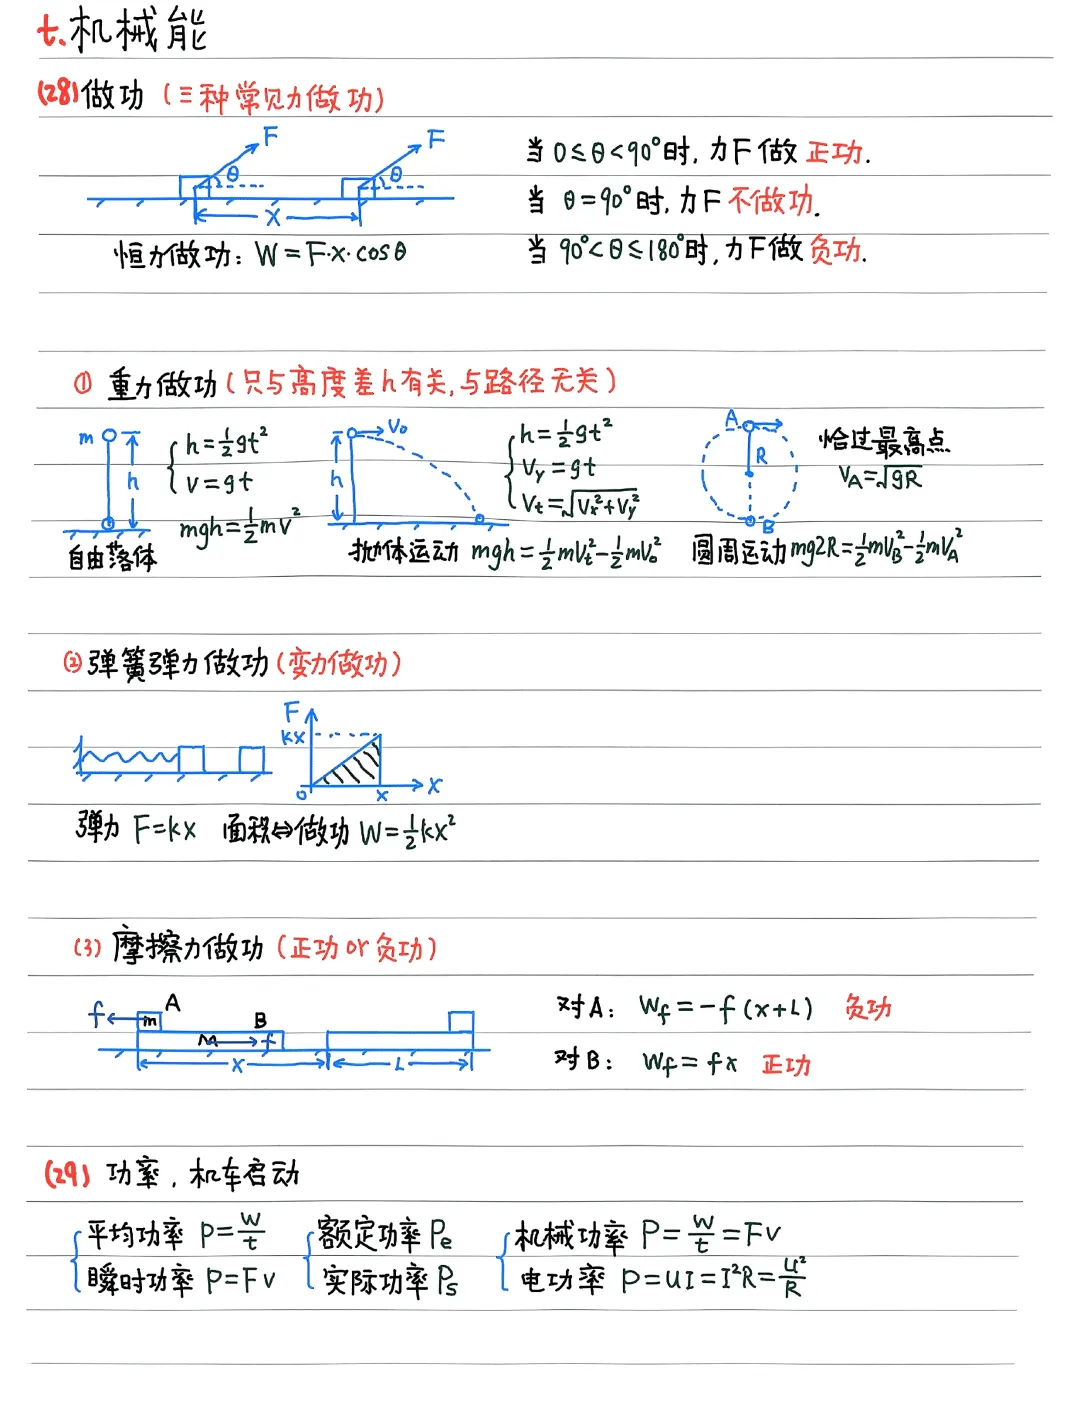 七、机械能
(28)做功（三种常见力做功）
F F
θ θ
x
恒力做功：W=F·x·cosθ
当 0≤θ<90°时, 力F做 正功.
当 θ=90°时, 力F 不做功.
当 90°<θ≤180°时, 力F做 负功.
① 重力做功（只与高度差h有关, 与路径无关）
m h
h=½gt²
v=gt
mgh=½mv²
自由落体
V₀
h
h=½gt²
Vy=gt
Vt=√(Vx²+Vy²)
抛体运动 mgh=½mVt²-½mV₀²
A
R
B
恰过最高点
VA=√gR
圆周运动 mg2R=½mVB²-½mVA²
② 弹簧弹力做功（变力做功）
F
kx
0 x x
弹力 F=kx 面积⇔做功 W=½kx²
(3) 摩擦力做功（正功 or 负功）
f m A
B
M f
x L
对A： Wf=-f(x+L) 负功
对B： Wf=fx 正功
(29) 功率, 机车启动
平均功率 P=W/t
瞬时功率 P=Fv
额定功率 Pe
实际功率 Ps
机械功率 P=W/t=Fv
电功率 P=UI=I²R=U²/R